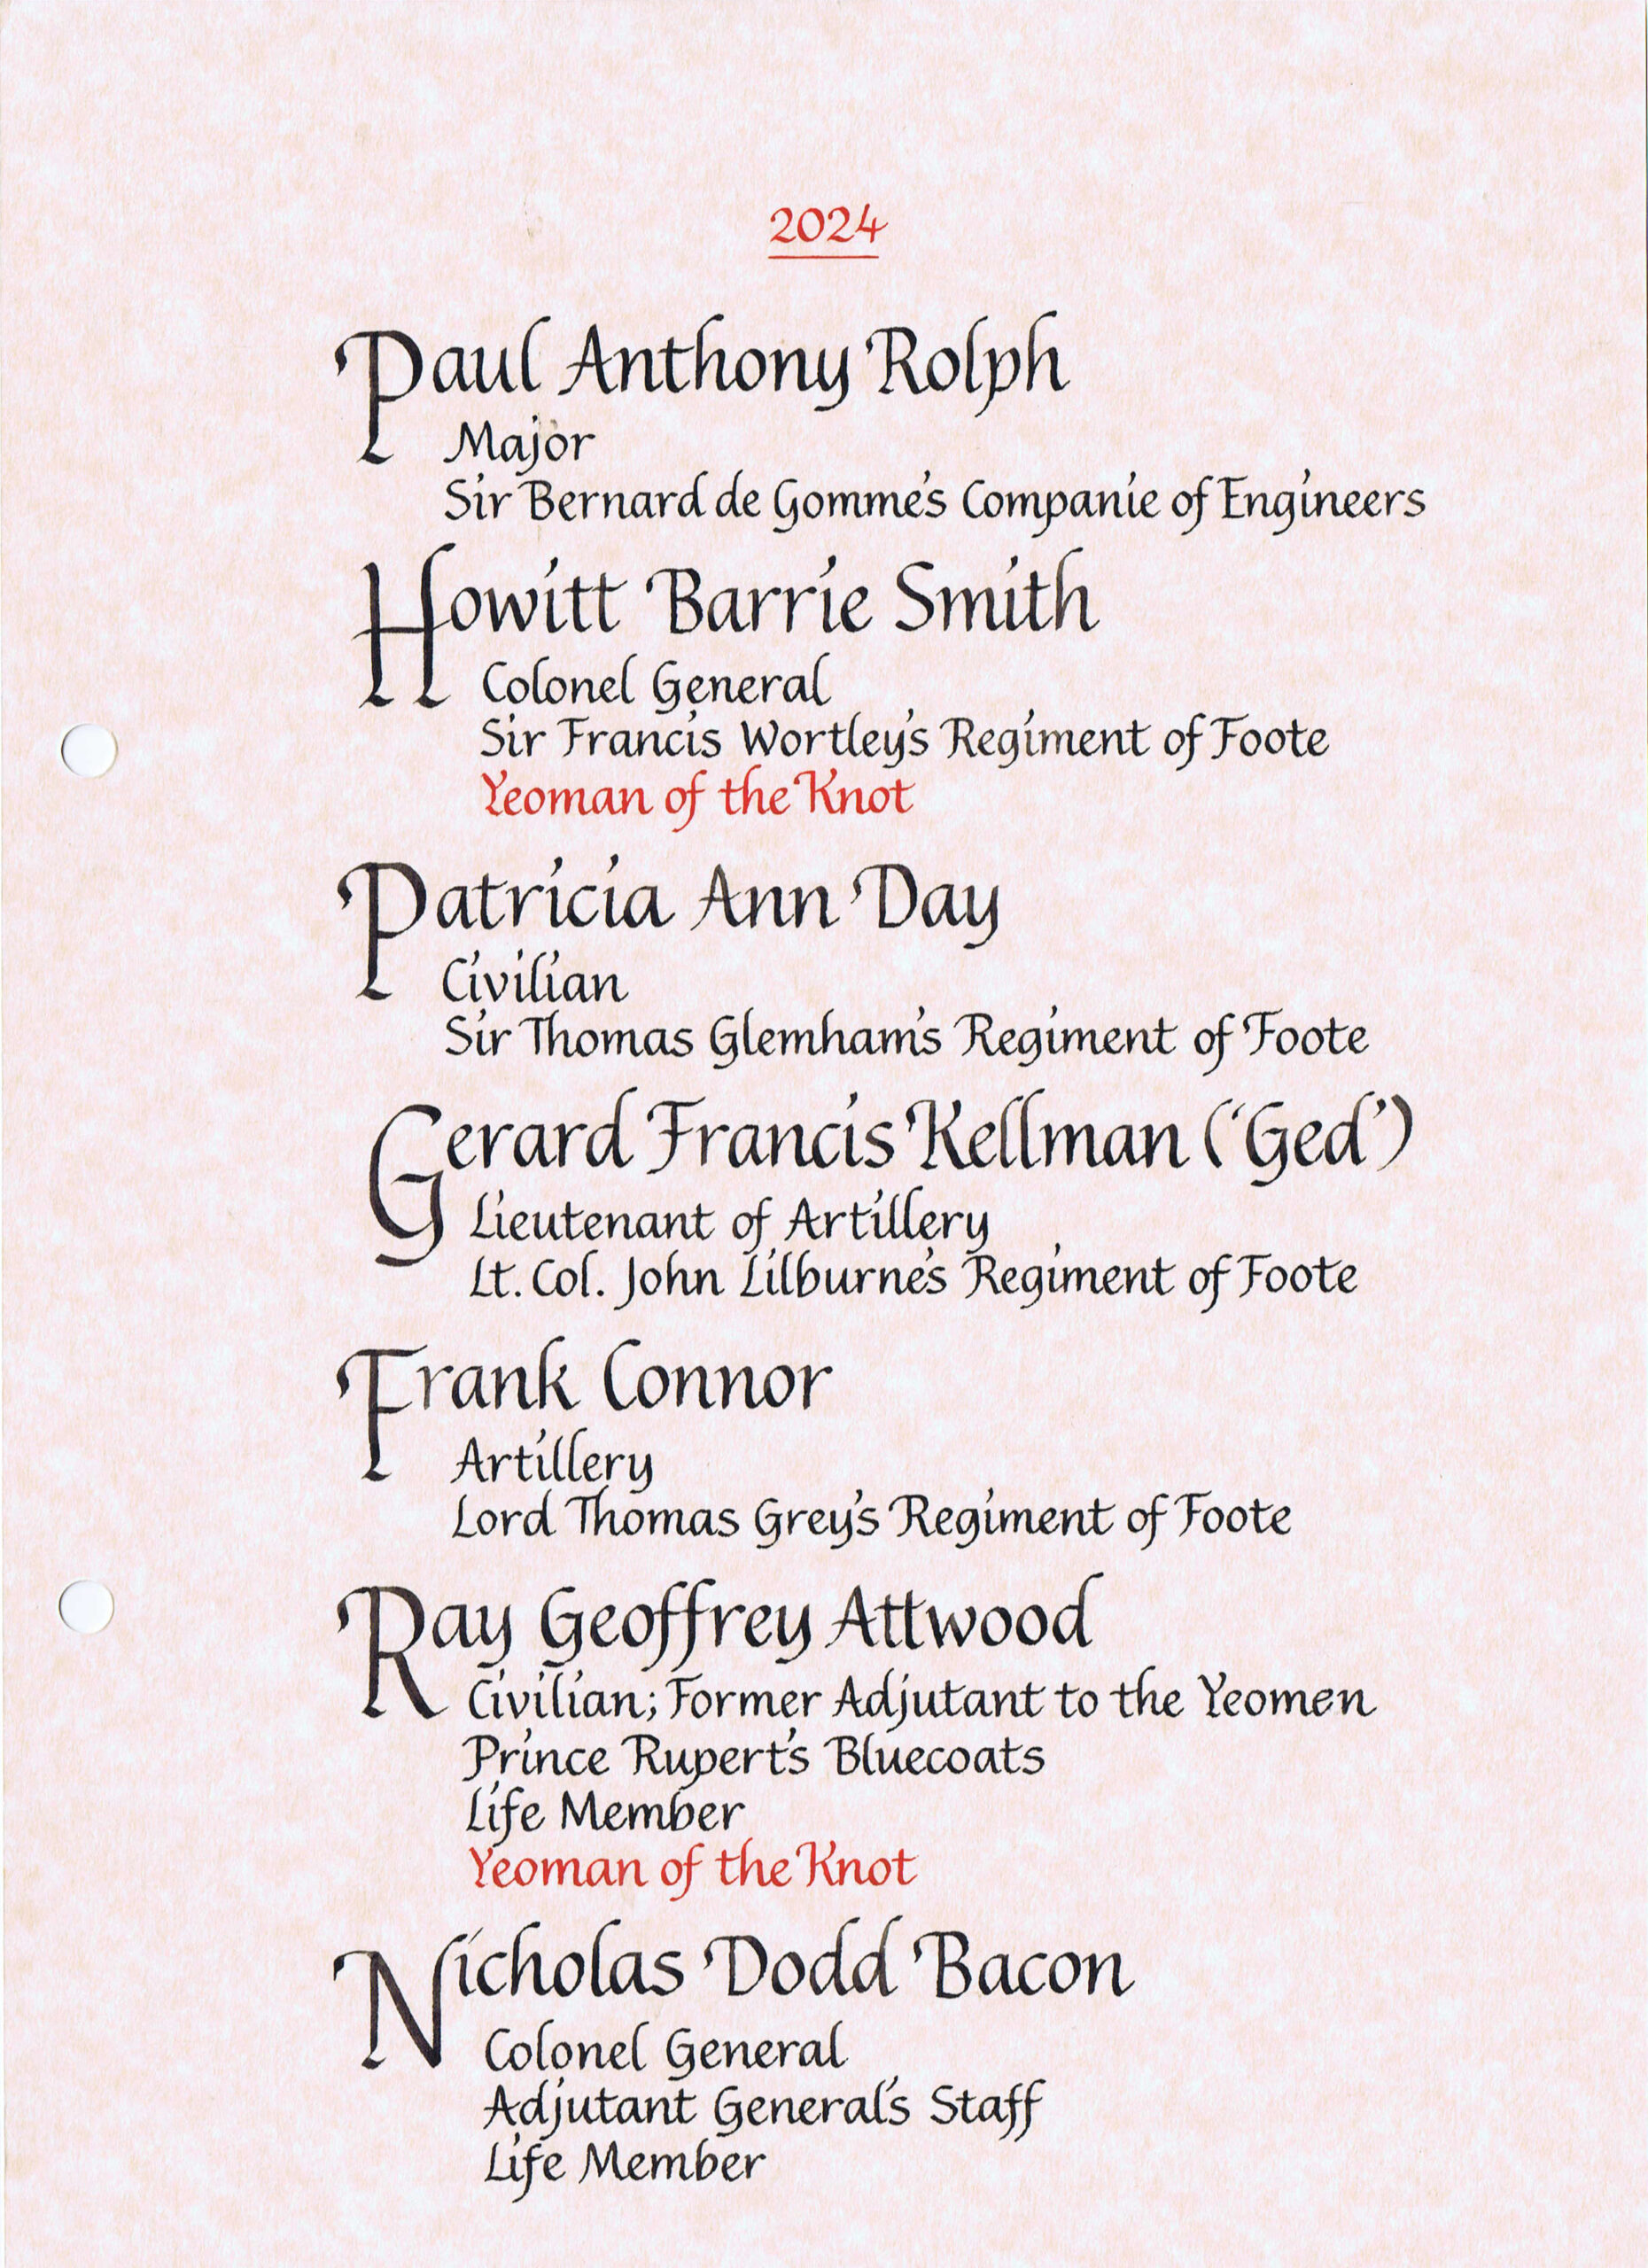 2024
Paul Anthony Rolph
Major
Sir Bernard de Gomme's Companie of Engineers
Howitt Barrie Smith
Colonel General
Sir Francis Wortley's Regiment of Foote
Yeoman of the Knot
Patricia Ann Day
Civilian
Sir Thomas Glemham's Regiment of Foote
Gerard Francis Kellman ('Ged')
Lieutenant of Artillery
Lt. Col. John Lilburne's Regiment of Foote
Frank Connor
Artillery
Lord Thomas Grey's Regiment of Foote
Ray Geoffrey Attwood
Civilian; Former Adjutant to the Yeomen
Prince Rupert's Bluecoats
Life Member
Yeoman of the Knot
Nicholas Dodd Bacon
Colonel General
Adjutant General's Staff
Life Member